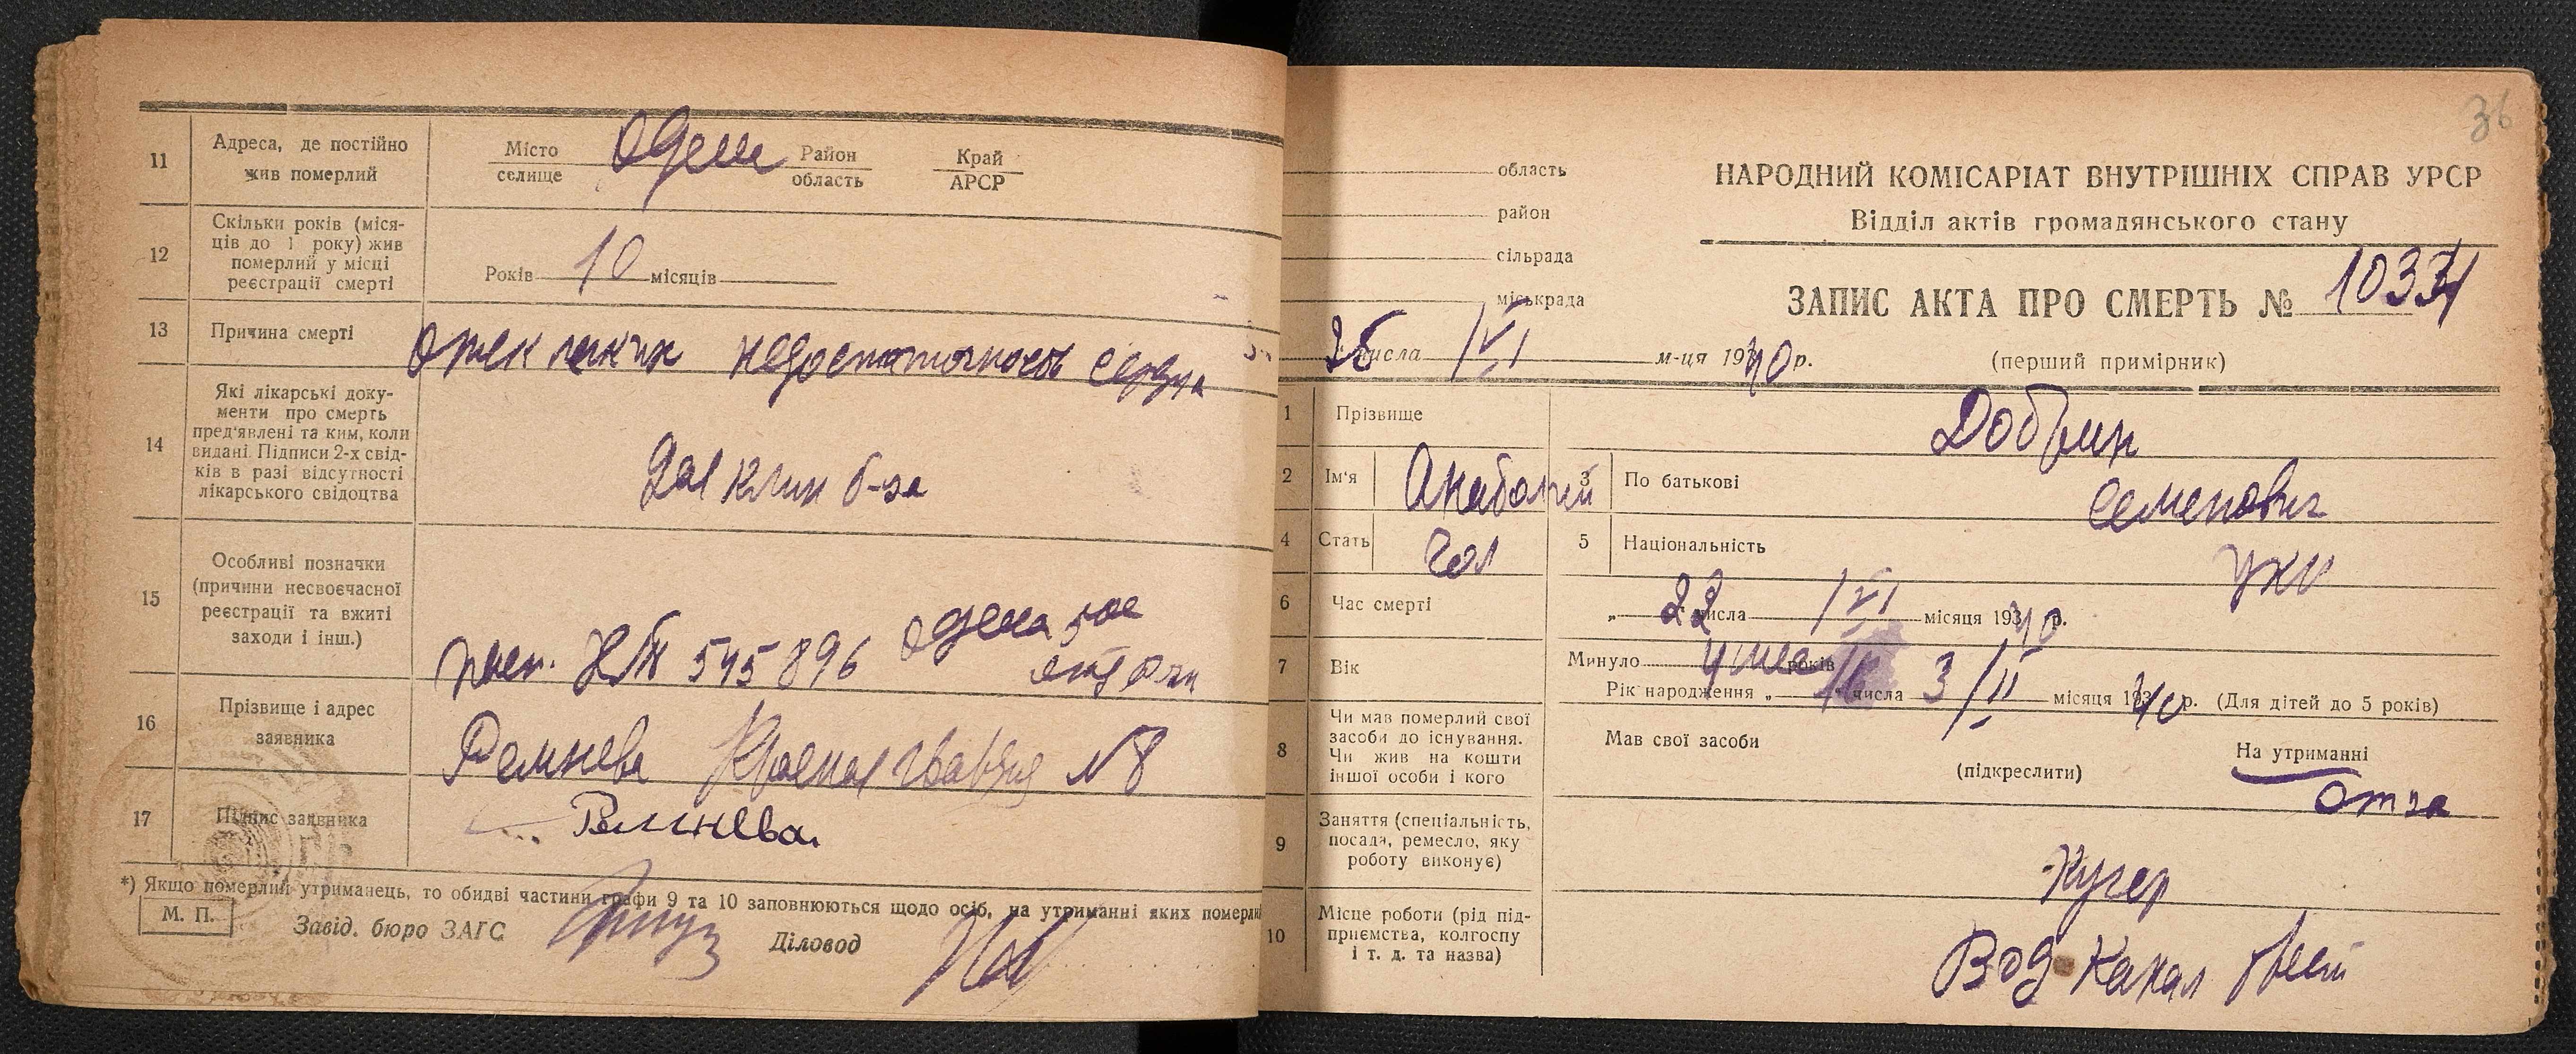 11 Адреса, де постійно жив померлий Місто селище Одеса Район область Край АРСР
12 Скільки років (міся-
ців до 1 року) жив
померлий у місці
реєстрації смерті
Років 10 місяців
13 Причина смерті
недостаточность сердца
14 Які лікарські доку-
менти про смерть
пред'явлені та ким, коли
видані. Підписи 2-х свід-
ків в разі відсутності
лікарського свідоцтва
клин б-ца
15 Особливі позначки
(причини несвоєчасної
реєстрації та вжиті
заходи і інш.)
545896 Одеса 5ое
16 Прізвище і адрес
заявника
Ремнева №8
17 Підпис заявника
Ремнева
*) Якщо померлий утриманець, то обидві частини графи 9 та 10 заповнюються щодо осіб, на утриманні яких померли
М. П.
Завід. бюро ЗАГС
Діловод
36
область
район
сільрада
міськрада
НАРОДНИЙ КОМІСАРІАТ ВНУТРІШНІХ СПРАВ УРСР
Відділ актів громадянського стану
ЗАПИС АКТА ПРО СМЕРТЬ №
(перший примірник)
числа VI м-ця 1940 р.
1 Прізвище
2 Ім'я
3 По батькові Семенович
4 Стать Чол
5 Національність Укр
6 Час смерті
„ 22 числа VI місяця 1940 р.
7 Вік
Минуло 4 років
Рік народження „ числа 3 II місяця 1940 р. (Для дітей до 5 років)
8 Чи мав померлий свої
засоби до існування.
Чи жив на кошти
іншої особи і кого
Мав свої засоби
(підкреслити)
На утриманні
отца
9 Заняття (спеціальність,
посада, ремесло, яку
роботу виконує)
Кучер
10 Місце роботи (рід під-
приємства, колгоспу
і т. д. та назва)
Вод Канал трест